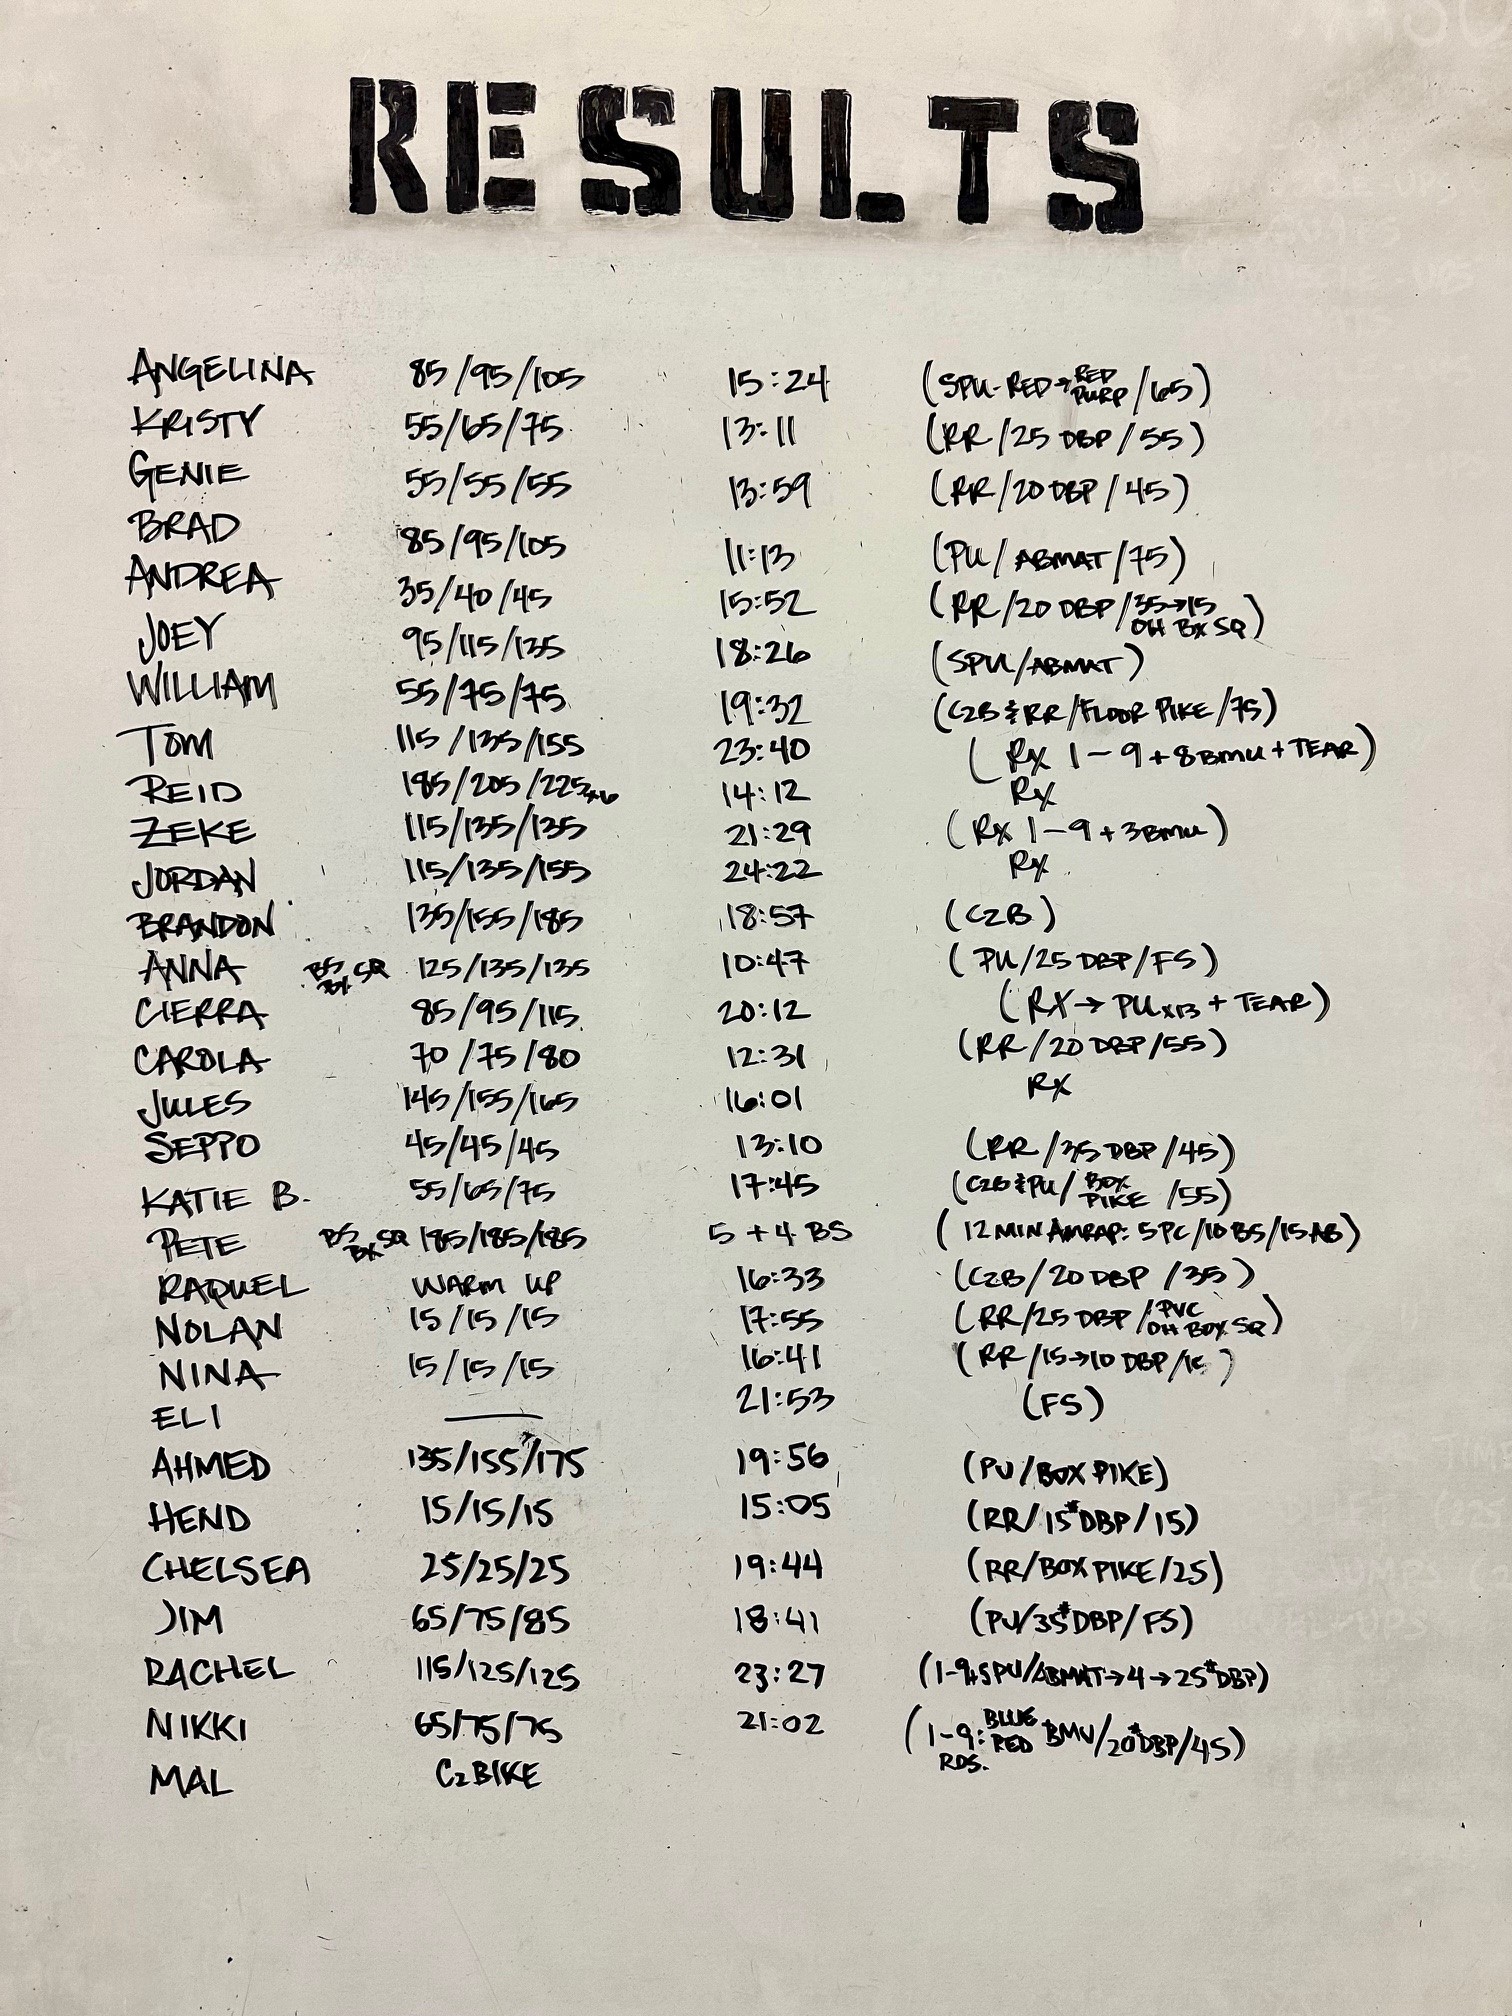 RESULTS
ANGELINA 85/95/105 15:24 (SPU-RED→RED PURP/65)
KRISTY 55/65/75 13:11 (RR/25 DBP/55)
GENIE 55/55/55 13:59 (RR/20 DBP/45)
BRAD 85/95/105 11:13 (PU/ABMAT/75)
ANDREA 35/40/45 15:52 (RR/20 DBP/35→15 OH BX SQ)
JOEY 95/115/135 18:26 (SPU/ABMAT)
WILLIAM 55/75/75 19:32 (C2B & RR/FLOOR PIKE/75)
TOM 115/135/155 23:40 (RX 1-9+8BMU+TEAR)
REID 185/205/225x6 14:12 RX
ZEKE 115/135/135 21:29 (RX 1-9+3BMU)
JORDAN 115/135/155 24:22 RX
BRANDON 135/155/185 18:57 (C2B)
ANNA BS BX SQ 125/135/135 10:47 (PU/25 DBP/FS)
CIERRA 85/95/115 20:12 (RX→PUx13+TEAR)
CAROLA 70/75/80 12:31 (RR/20 DBP/55)
JULES 145/155/165 16:01 RX
SEPPO 45/45/45 13:10 (RR/35 DBP/45)
KATIE B. 55/65/75 17:45 (C2B & PU/BOX PIKE/55)
PETE BS BX SQ 185/185/185 5+4 BS (12 MIN AMRAP: 5PC/10BS/15AB)
RAQUEL WARM UP 16:33 (C2B/20 DBP/35)
NOLAN 15/15/15 17:55 (RR/25 DBP/PVC OH BOX SQ)
NINA 15/15/15 16:41 (RR/15→10 DBP/15)
ELI — 21:53 (FS)
AHMED 135/155/175 19:56 (PU/BOX PIKE)
HEND 15/15/15 15:05 (RR/15# DBP/15)
CHELSEA 25/25/25 19:44 (RR/BOX PIKE/25)
JIM 65/75/85 18:41 (PU/35# DBP/FS)
RACHEL 115/125/125 23:27 (1-9:SPU/ABMAT→4→25# DBP)
NIKKI 65/75/75 21:02 (1-9: RDS. BLUE RED BMU/20# DBP/45)
MAL C2 BIKE